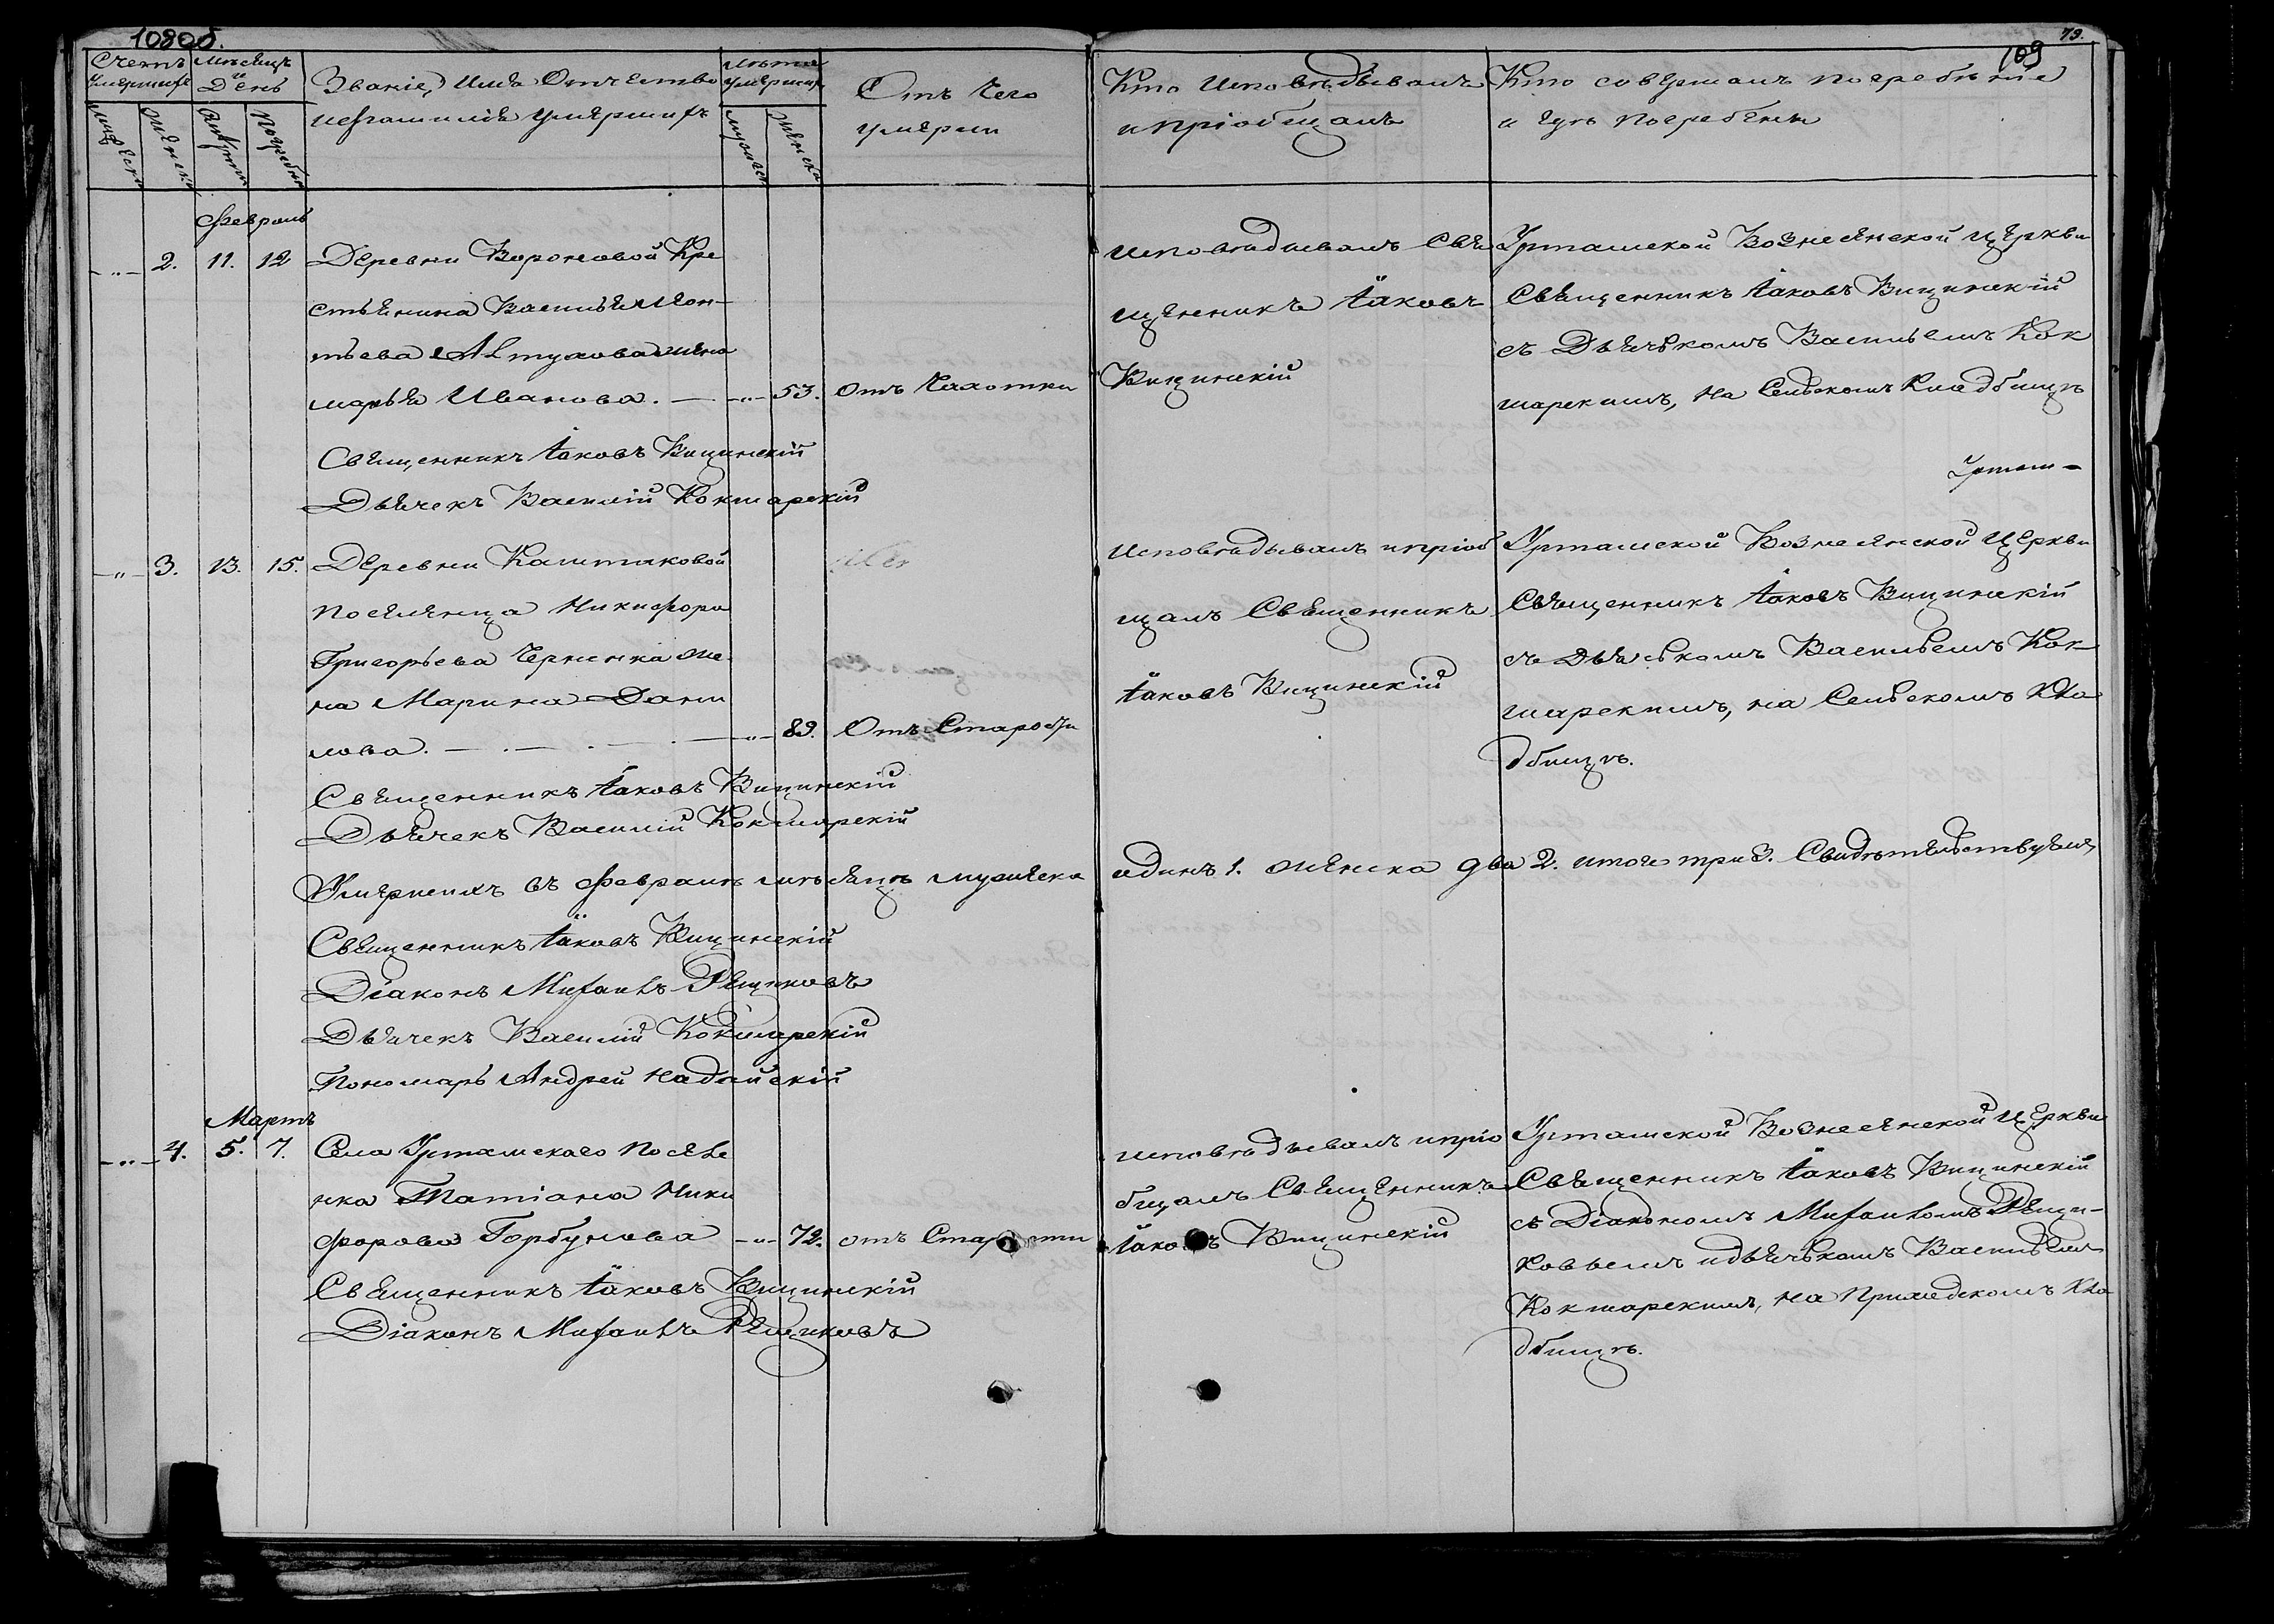 108об.
79.
109
Счетъ умершихъ
Мѣсяцъ и День
Званіе, Имя Отчество
и фамилія умершихъ
Лѣта умершихъ
Отъ чего
умерли
мужеска
женска
смерти
погребенія
мужеска
женска
Кто исповѣдывалъ
и пріобщалъ
Кто совершалъ погребеніе
и гдѣ погребены
Февраль
-"- 2. 11. 12 Деревни Вороновой Кре
стьянина Василья Леон-
тьева Алтухова жена
марья Иванова. — -"- 53. отъ Чахотки
Священникъ Іаковъ Вицинскій
Дьячекъ Василій Кокшарскій
исповѣдывалъ Свя
щенникъ Іаковъ
Вицинскій
Урташской Вознесенской церкви
Священникъ Іаковъ Вицинскій
съ Дьячькомъ Васильемъ Кок
шарскимъ, на Сельскомъ Кладбищѣ
Урташ-
-"- 3. 13. 15. Деревни Каштаковой
поселенца Никифора
Григорьева Черненка же
на Марина Дани
лова. — -"- 89. Отъ Старости
Священникъ Іаковъ Вицинскій
Дьячекъ Василій Кокшарскій
Исповѣдывалъ и пріоб
щалъ Священникъ
Іаковъ Вицинскій
Урташской Вознесенской Церкви
Священникъ Іаковъ Вицинскій
съ Дьячькомъ Васильемъ Кок-
шарскимъ, на Сельскомъ Кла
дбищѣ.
Умершихъ въ февралѣ мѣсяцѣ мужеска
одинъ 1. женска два 2. итого три 3. Свидѣтельствуемъ,
Священникъ Іаковъ Вицинскій
Діаконъ Михаилъ Рещиковъ
Дьячекъ Василій Кокшарскій
Пономарь Андрей Надайскій
Мартъ
-"- 4. 5. 7. Села Урташскаго Поселе
нка Татіана Ники
форова Горбунова -"- 72. отъ Старости
Священникъ Іаковъ Вицинскій
Діаконъ Михаилъ Рещиковъ
исповѣдывалъ и пріо
бщалъ Священникъ
Іаковъ Вицинскій
Урташской Вознесенской Церкви
Священникъ Іаковъ Вицинскій
съ Діакономъ Михаиломъ Рещи-
ковымъ и дьячькомъ Васильемъ
Кокшарскимъ, на Приходскомъ Кла
дбищѣ.